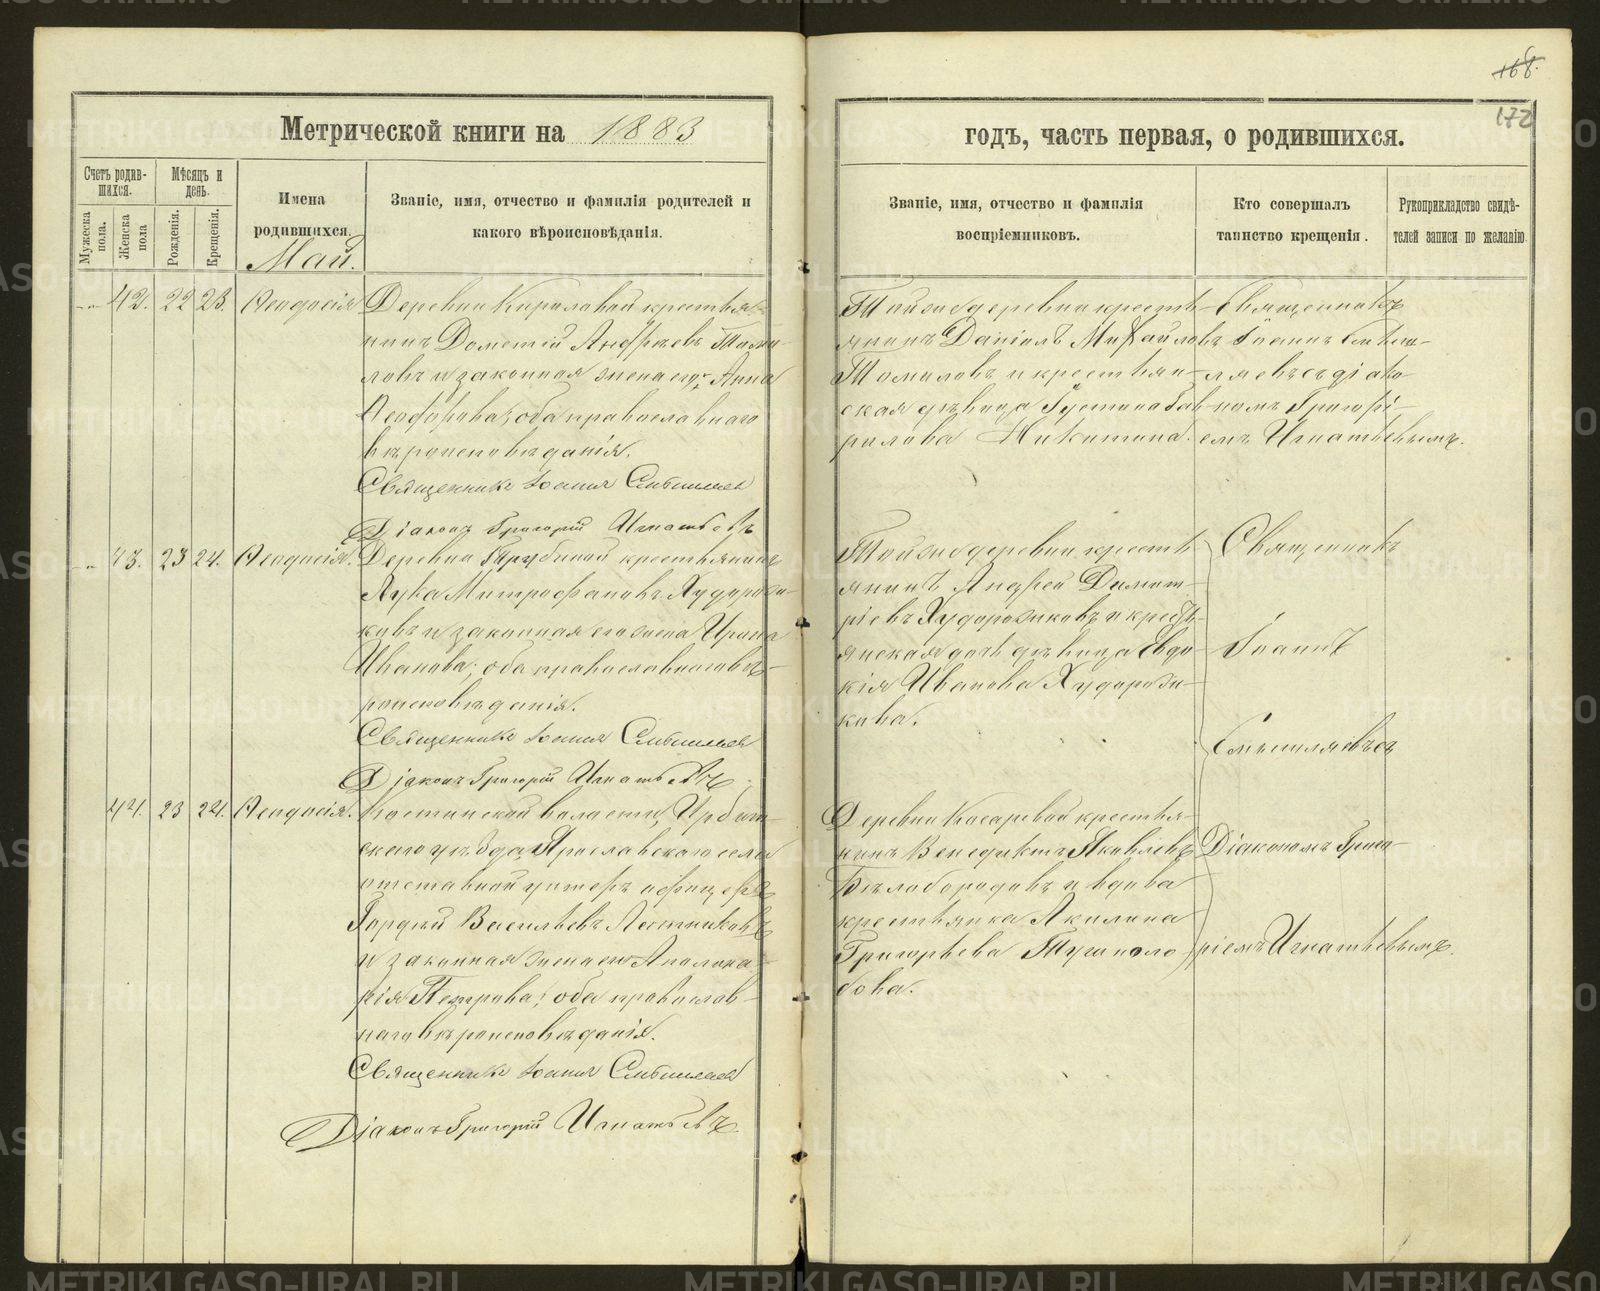 168.
172
Метрической книги на 1883
годъ, часть первая, о родившихся.
Счетъ родив-
шихся.
Мужеска пола.
Женска пола
Мѣсяцъ и
день.
Рожденія.
Крещенія.
Имена
родившихся.
Май.
Званіе, имя, отчество и фамилія родителей и
какого вѣроисповѣданія.
Званіе, имя, отчество и фамилія
воспріемниковъ.
Кто совершалъ
таинство крещенія.
Рукоприкладство свидѣ-
телей записи по желанію.
42. 22 23. Ѳеодосія
Деревни Кириловой крестья-
нинъ Дометій Андреевъ Томи-
ловъ и законная жена его Анна
Ѳеодорова; оба православнаго
вѣроисповѣданія.
Священникъ Іоаннъ Смышляев
Діаконъ Григорій Игнатьевъ
Той же деревни кресть-
янинъ Даніилъ Михайловъ
Томиловъ и крестьян-
ская дѣвица Іустина Гав-
рилова Никитина.
Священникъ
Іоаннъ Смыш-
ляевъ съ діако-
номъ Григорі-
емъ Игнатьевымъ.
43. 23 24. Ѳеодосія.
Деревни Трубиной крестьянинъ
Лука Митрофановъ Худорожи-
ковъ и законная его жена Ирина
Иванова; оба православнаго вѣ-
роисповѣданія.
Священникъ Іоаннъ Смышляев
Діаконъ Григорій Игнатьевъ
Той же деревни кресть-
янинъ Андрей Димит-
ріевъ Худорожиковъ и кресть-
янская дочь дѣвица Евдо-
кія Иванова Худорожи-
кова.
Священникъ
Іоаннъ
Смышляевъ съ
44. 23 24. Ѳеодосія.
волости, Ирбит-
скаго уѣзда, Ярославскаго села
отставной унтеръ офицеръ
Гордѣй Васильевъ
и законная жена его Аполина-
рія Петрова; оба православ-
наго вѣроисповѣданія.
Священникъ Іоаннъ Смышляев
Діаконъ Григорій Игнатьевъ
Деревни Косаревой крестья-
нинъ Венедиктъ Яковлевъ
Бѣлобородовъ и вдова
крестьянка Акилина
Григорьева Тушноло-
бова.
Діакономъ Григо-
ріемъ Игнатьевымъ.
METRIKI.GASO-URAL.RU